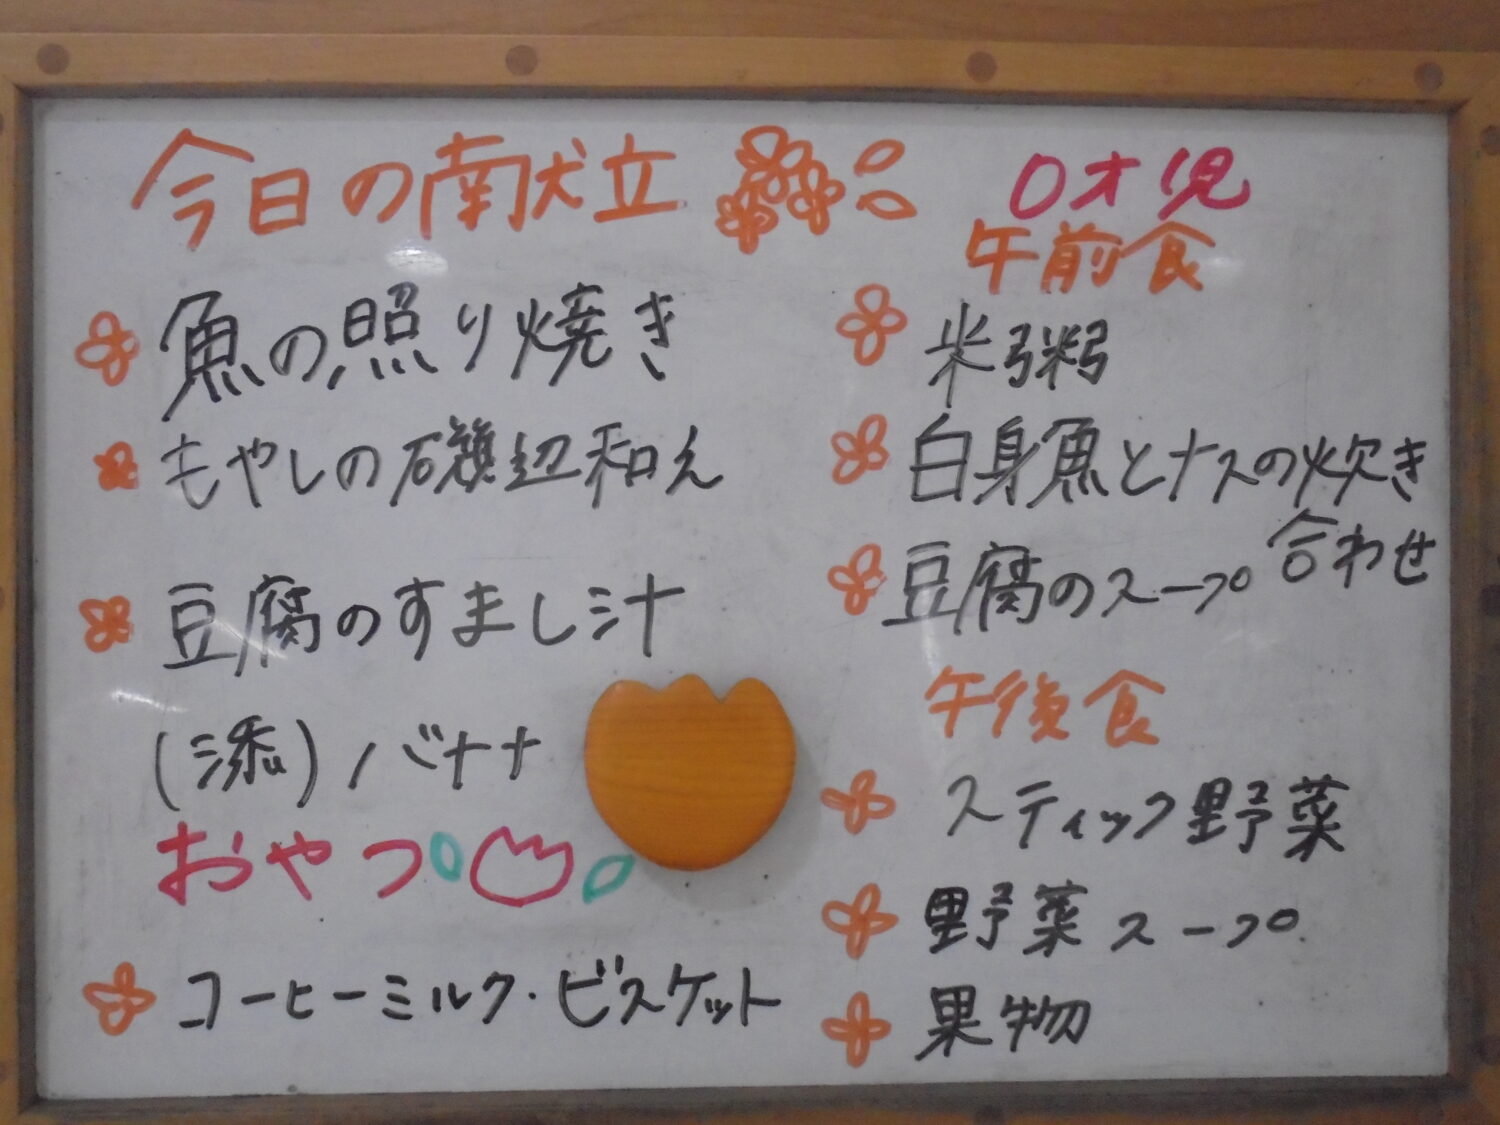 今日の献立
魚の照り焼き
もやしの磯辺和え
豆腐のすまし汁
(添)バナナ
おやつ
コーヒーミルク・ビスケット
0才児
午前食
米粥
白身魚とナスの炊き
合わせ
豆腐のスープ
午後食
スティック野菜
野菜スープ
果物